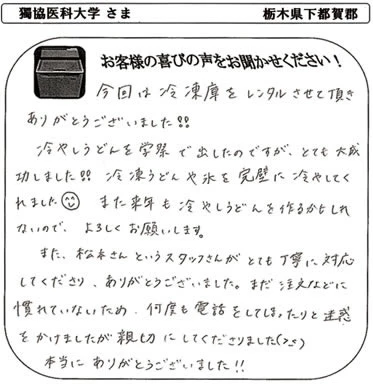 獨協医科大学 さま 栃木県下都賀郡
お客様の喜びの声をお聞かせください！
今回は冷凍庫をレンタルさせて頂き
ありがとうございました!!
冷やしうどんを学祭で出したのですが、とても大成
功しました!! 冷凍うどんや氷を完璧に冷やしてく
れました また来年も冷やしうどんを作るかもしれ
ないので、よろしくお願いします。
また、松本さんというスタッフさんがとても丁寧に対応
してくださり、ありがとうございました。まだ注文などに
慣れていないため、何度も電話をしてしまったりと迷惑
をかけましたが親切にしてくださりました
本当にありがとうございました!!